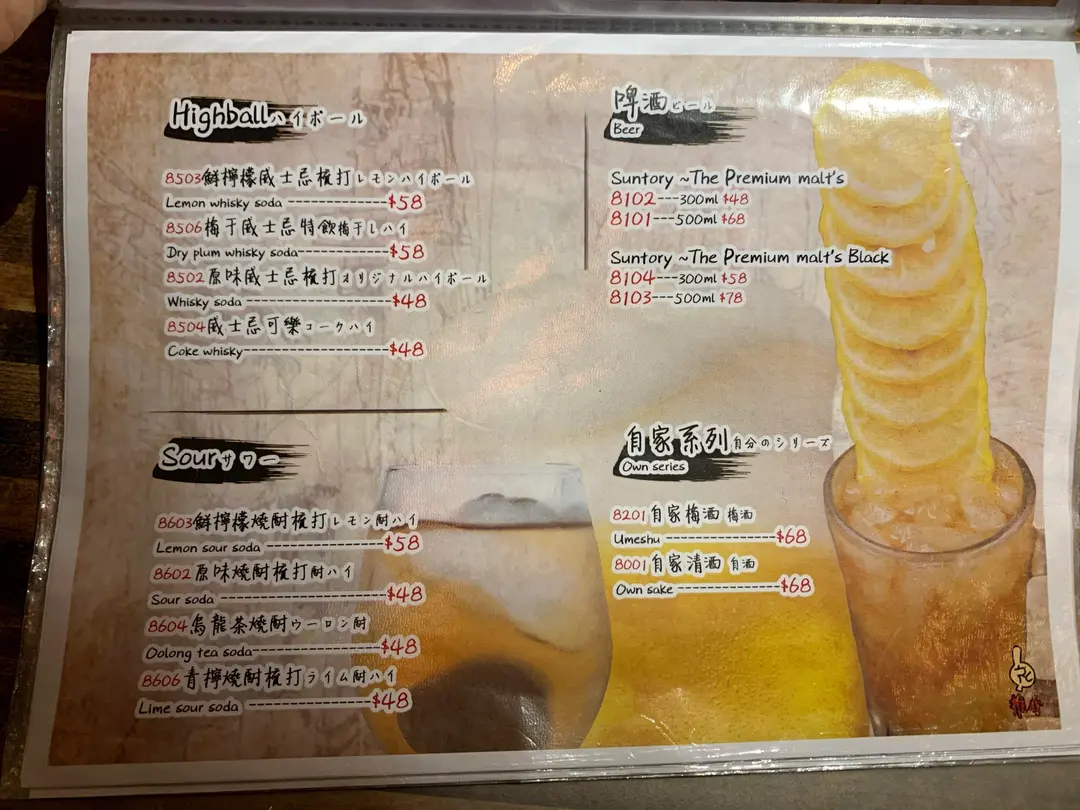 Highballハイボール
8503鮮檸檬威士忌梳打レモンハイボール
Lemon whisky soda ----------------$58
8506梅干威士忌特飲梅干しハイ
Dry plum whisky soda--------------$58
8502原味威士忌梳打オリジナルハイボール
Whisky soda ----------------------$48
8504威士忌可樂コークハイ
Coke whisky-----------------------$48
Sourサワー
8603鮮檸檬燒酎梳打レモン酎ハイ
Lemon sour soda ------------------$58
8602原味燒酎梳打酎ハイ
Sour soda ------------------------$48
8604烏龍茶燒酎ウーロン酎
Oolong tea soda-------------------$48
8606青檸燒酎梳打ライム酎ハイ
Lime sour soda -------------------$48
啤酒ビール
Beer
Suntory ~The Premium malt's
8102---300ml $48
8101---500ml $68
Suntory ~The Premium malt's Black
8104---300ml $58
8103---500ml $78
自家系列自分のシリーズ
Own series
8201自家梅酒 梅酒
Umeshu ------------------$68
8001自家清酒 自酒
Own sake ----------------$68